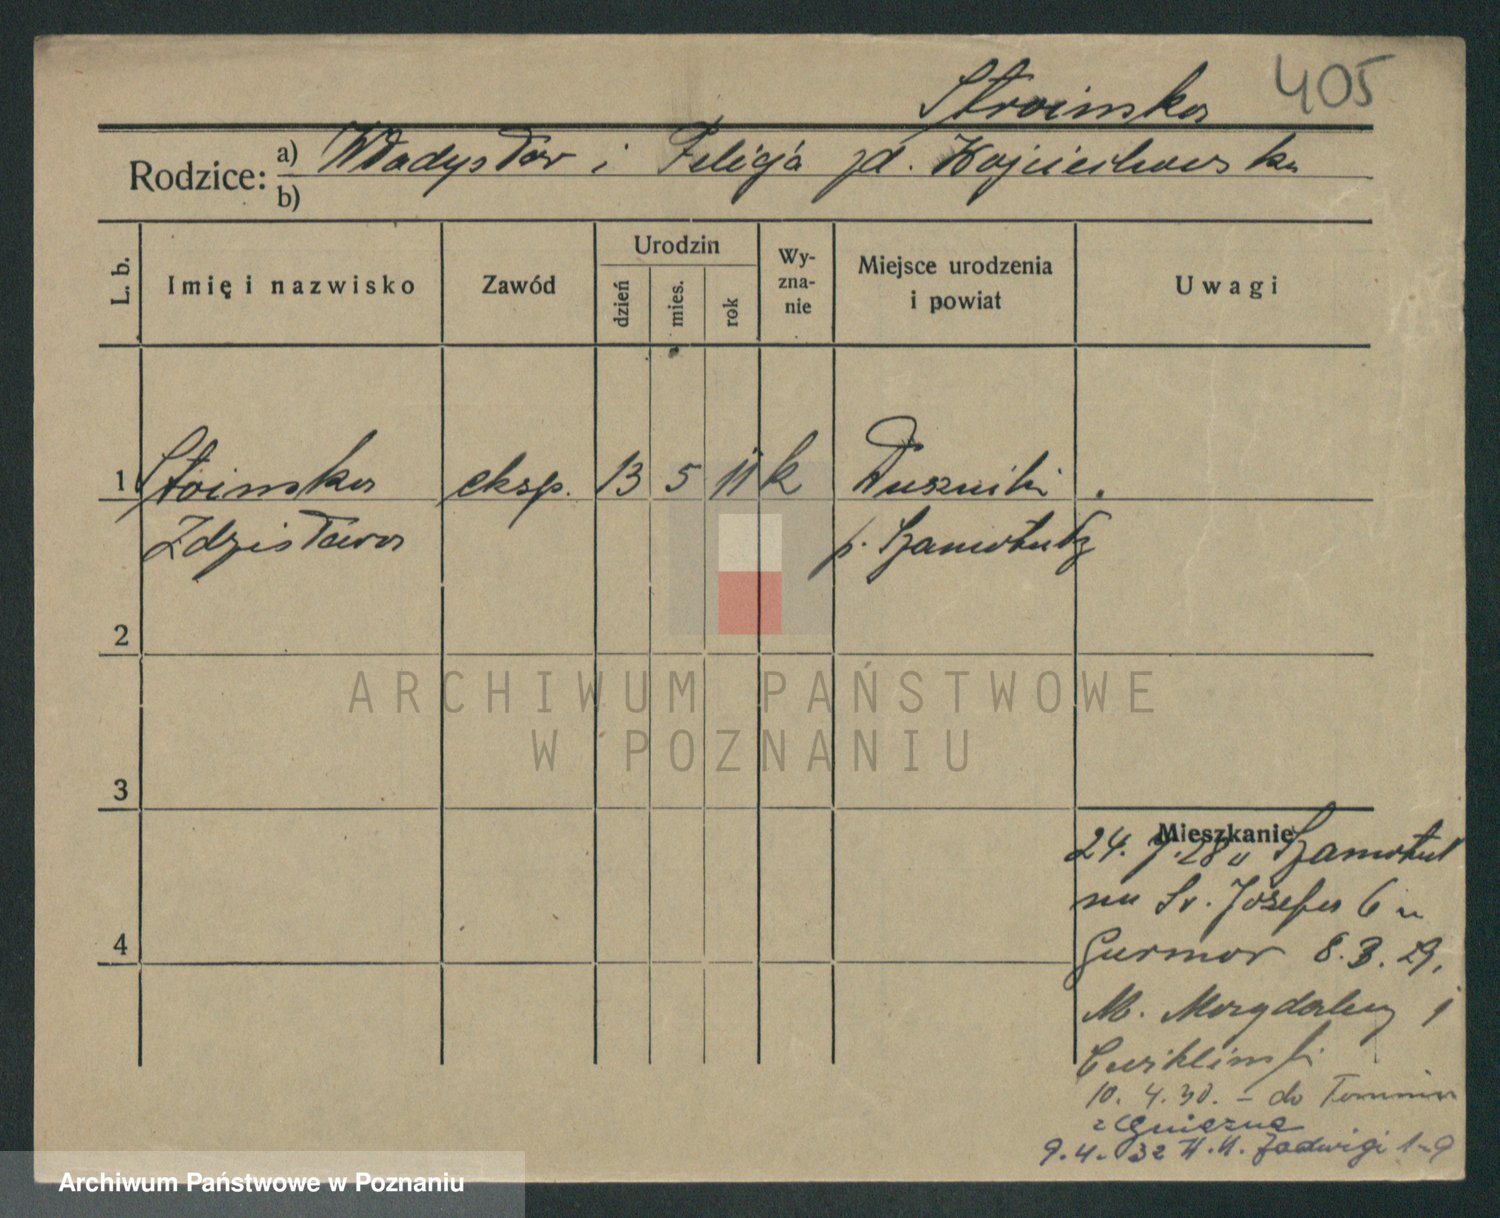 Stroinska 405
Rodzice: a) Władysław i Felicja zd. Wojciechowska
b)
L. b.
Imię i nazwisko
Zawód
Urodzin
dzień
mies.
rok
Wy-
zna-
nie
Miejsce urodzenia
i powiat
Uwagi
1 Stoinska eksp. 13 5 11 k Duszniki
Zdzisława p. Szamotuły
2
ARCHIWUM PAŃSTWOWE
W POZNANIU
3
Mieszkanie
24. 7. 28 u Szamotuł
na Św. Józefa 6 u
8. 3. 29.
4
M. Magdaleny 1
10. 4. 30. – do
z Gniezna
9. 4. 32 Jadwigi 1-9
Archiwum Państwowe w Poznaniu